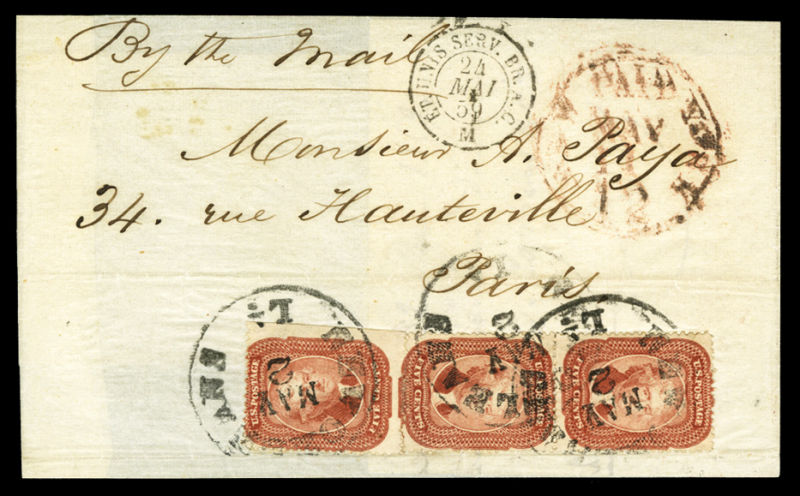 By the Mail
ET. UNIS SERV. BR. A. C.
24
MAI
59
M
PAID
MAY
12
Monsieur A. Paya
34. rue Hauteville
Paris
La.
MAY
2
U.S. POSTAGE
U.S. POSTAGE
FIVE CENTS
La.
MAY
2
U.S. POSTAGE